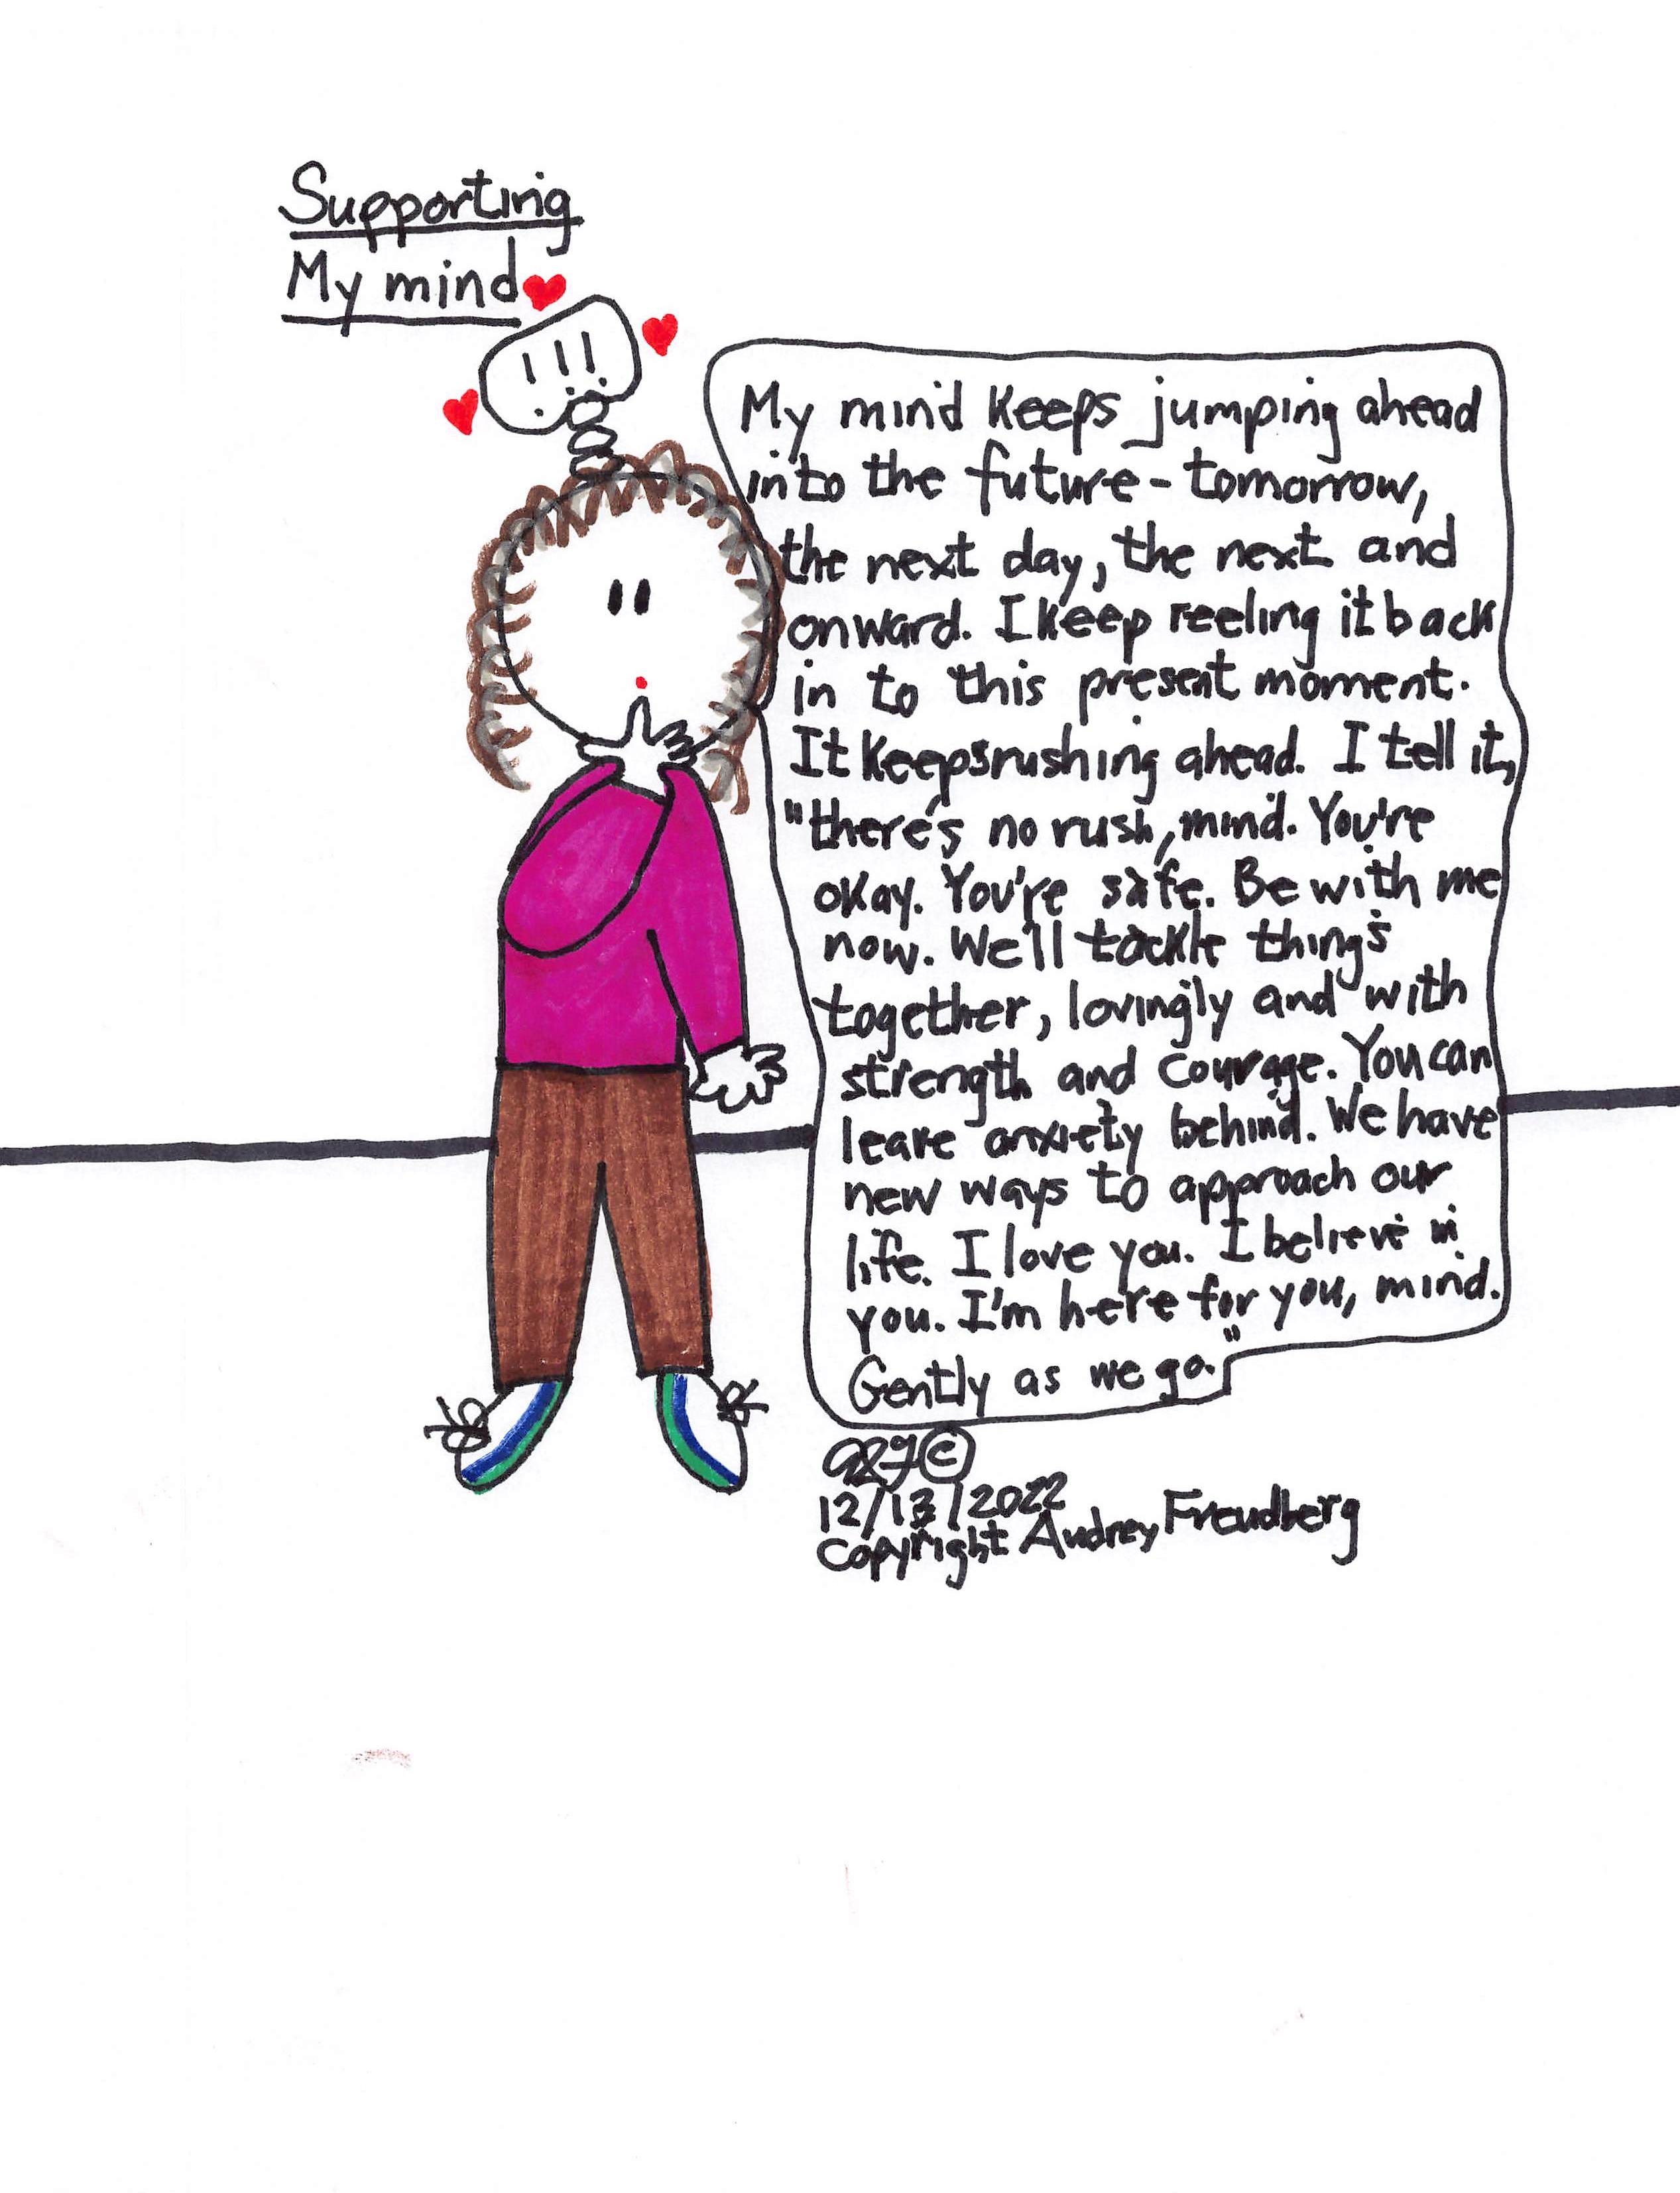 Supporting
My mind
!!!
My mind keeps jumping ahead
into the future - tomorrow,
the next day, the next and
onward. I keep reeling it back
in to this present moment.
It keeps rushing ahead. I tell it,
"there's no rush, mind. You're
okay. You're safe. Be with me
now. We'll tackle things
together, lovingly and with
strength and courage. You can
leave anxiety behind. We have
new ways to approach our
life. I love you. I believe in
you. I'm here for you, mind.
Gently as we go."
©
12/13/2022
Copyright Audrey Freudberg